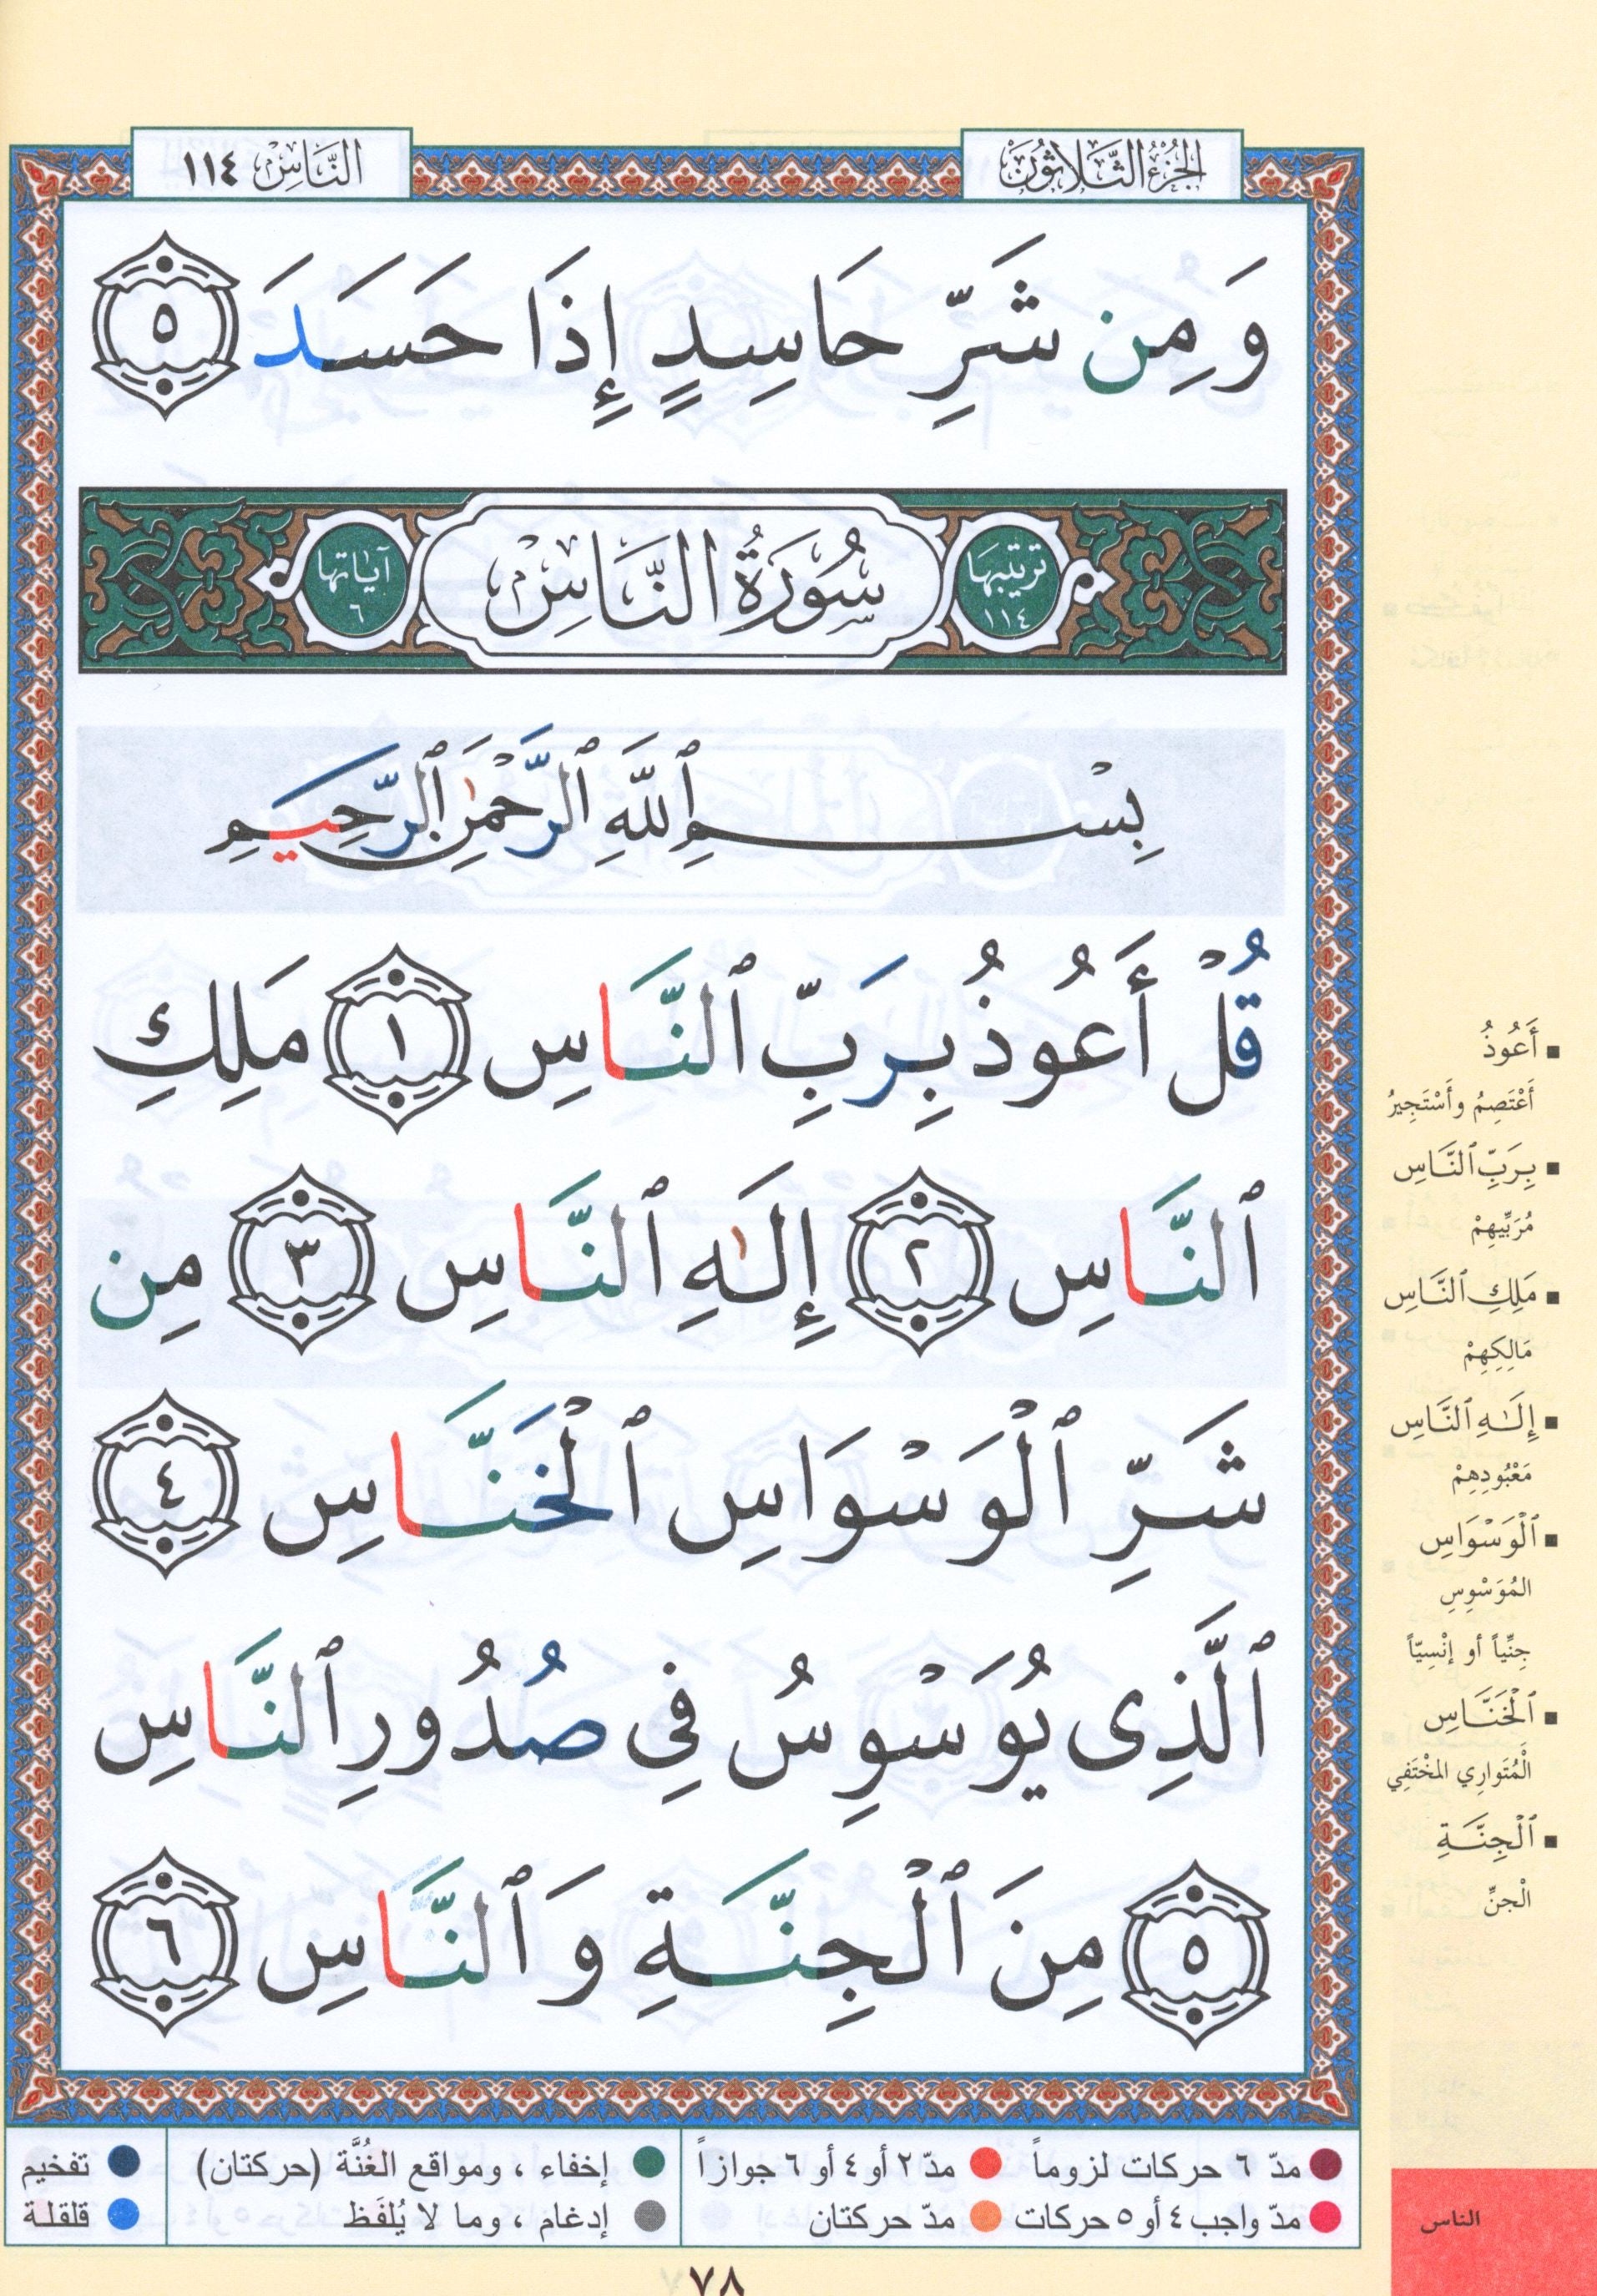 الجُزْءُ الثَّلَاثُونَ
النَّاسِ ١١٤
وَمِن شَرِّ حَاسِدٍ إِذَا حَسَدَ ٥
ترتيبها ١١٤
سُورَةُ النَّاسِ
آياتها ٦
بِسْمِ ٱللَّهِ ٱلرَّحْمَٰنِ ٱلرَّحِيمِ
قُلْ أَعُوذُ بِرَبِّ ٱلنَّاسِ ١ مَلِكِ
ٱلنَّاسِ ٢ إِلَٰهِ ٱلنَّاسِ ٣ مِن
شَرِّ ٱلْوَسْوَاسِ ٱلْخَنَّاسِ ٤
ٱلَّذِى يُوَسْوِسُ فِى صُدُورِ ٱلنَّاسِ
٥ مِنَ ٱلْجِنَّةِ وَٱلنَّاسِ ٦
▪ أَعُوذُ
أَعْتَصِمُ وأَسْتَجِيرُ
▪ بِرَبِّ ٱلنَّاسِ
مُرَبِّيهِمْ
▪ مَلِكِ ٱلنَّاسِ
مَالِكِهِمْ
▪ إِلَٰهِ ٱلنَّاسِ
مَعْبُودِهِمْ
▪ ٱلْوَسْوَاسِ
المُوَسْوِسِ
جِنِّياً أو إنْسِيّاً
▪ ٱلْخَنَّاسِ
الْمُتَوارِي المخْتَفِي
▪ ٱلْجِنَّةِ
الْجنِّ
مدّ ٦ حركات لزوماً
مدّ ٢ أو ٤ أو ٦ جوازاً
إخفاء ، ومواقع الغُنَّة (حركتان)
تفخيم
مدّ واجب ٤ أو ٥ حركات
مدّ حركتان
إدغام ، وما لا يُلفَظ
قلقلة
الناس
٧٨